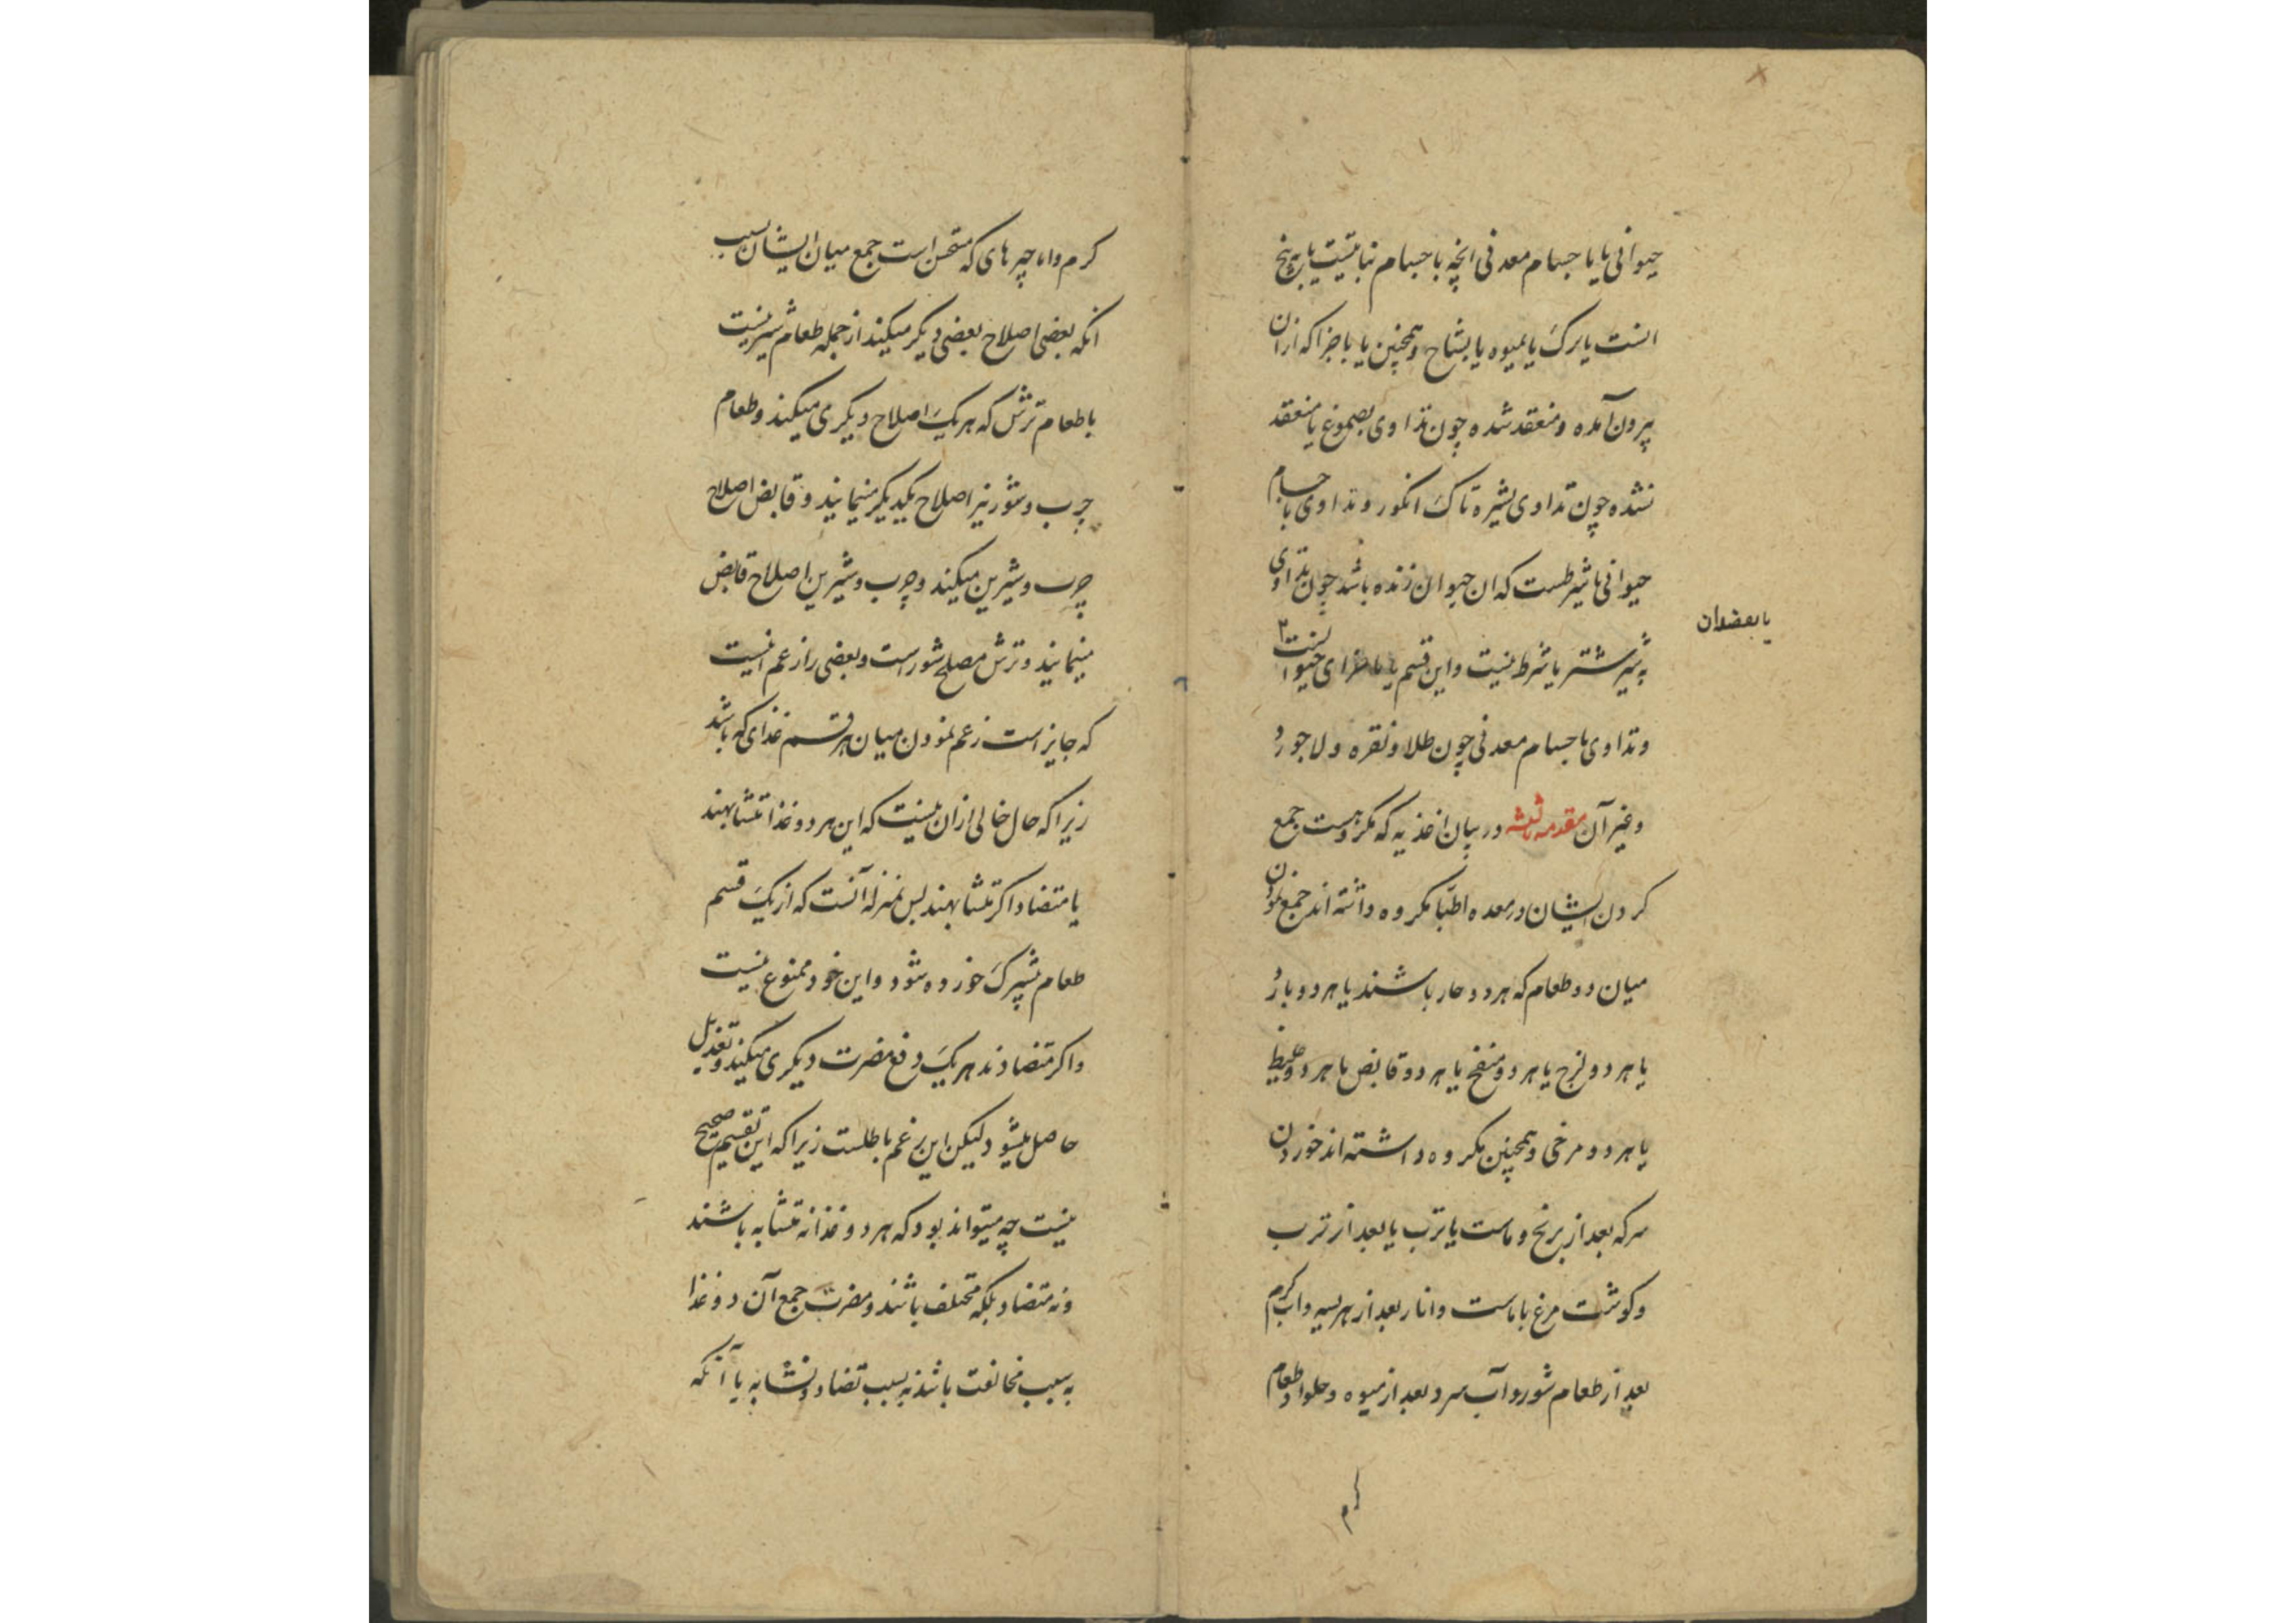 حیوانی یا باجسام معدنی انچه باجسام نباتیست یا به بیخ
انست یا برک یا بمیوه یا بشاخ و همچنین یا باجزا که ازان
بیرون آمده و منعقد شده چون تداوی بصموغ یا منعقد
نشده چون تداوی بشیره تاک انکور و تداوی باجسام
حیوانی یا شرطست که ان حیوان زنده باشد چون تداوی
به شیر شتر یا شرط نیست و این قسم یا باجزای حیوانست
یا ببعضدان
و تداوی باجسام معدنی چون طلا و نقره و لاجورد
و غیر آن مقدمه ثالثه در بیان اغذیه که مکروهست جمع
کردن ایشان در معده اطبا مکروه داشته اند جمع نمودن
میان دو طعام که هر دو حار باشند یا هر دو بارد
یا هر دو لزج یا هر دو منفخ یا هر دو قابض یا هر دو غلیظ
یا هر دو مرخی و همچنین مکروه داشته اند خوردن
سرکه بعد از برنج و ماست یا ترب یا بعد از ترب
و کوشت مرغ با ماست و انار بعد از هریسه و اب کرم
بعد از طعام شور و آب سرد بعد از میوه و حلوا و طعام
کرم
کرم و اما چیزهای که مستحسن است جمع میان ایشان بسبب
انکه بعضی اصلاح بعضی دیکر میکیند از جمله طعام شیرینیست
با طعام ترش که هر یک اصلاح دیکری میکیند و طعام
چرب و شور نیز اصلاح یکدیکر مینمایند و قابض اصلاح
چرب و شیرین میکیند و چرب و شیرین اصلاح قابض
مینمایند و ترش مصلح شور است و بعضی را زعم انیست
که جایز است زعم نمودن میان هر قسم غذای که باشد
زیرا که حال خالی ازان نیست که این هر دو غذا متشابهند
یا متضاد اکر متشابهند بس بمنزله آنست که از یک قسم
طعام بیشترک خورده شود و این خود ممنوع نیست
و اکر متضادند هر یک دفع مضرت دیکری میکیند و تعدیل
حاصل میشود لیکن این زعم باطلست زیرا که این تقسیم صحیح
نیست چه میتواند بود که هر دو غذا نه متشابه باشند
و نه متضاد بلکه مختلف باشند و مضرت جمع آن دو غذا
به سبب مخالفت باشد نه بسبب تضاد و تشابه یا آنکه